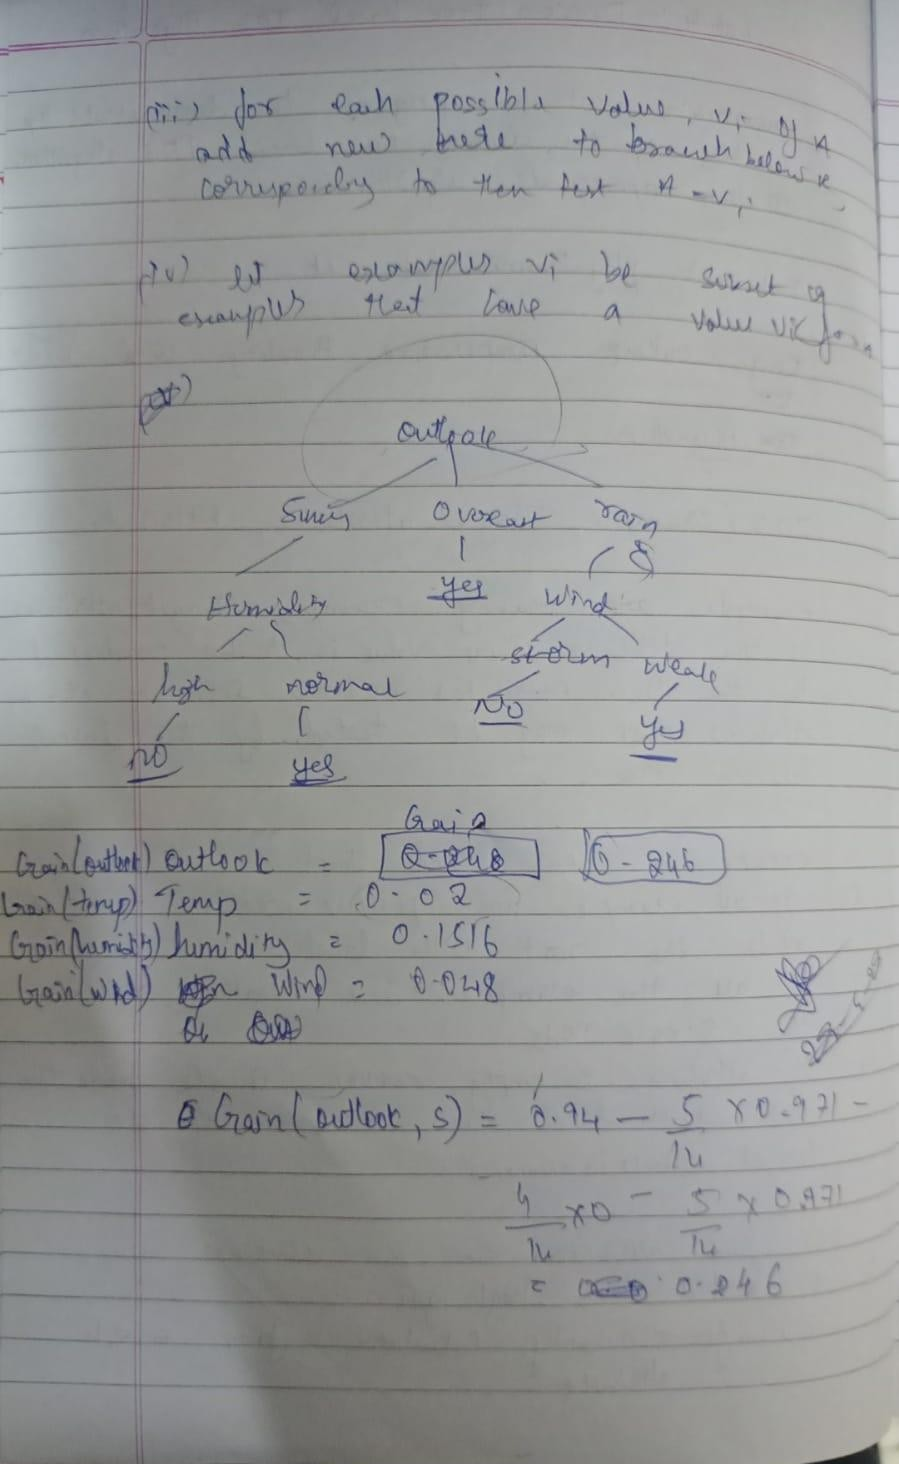 (iii) for each possible value, vi of A
add new here to branch below
to then test A = vi
(iv) let examples vi be subset of
examples that have a value vi for A
Outlook
Sunny Overcast rain
yes
Humidity Wind
storm Weak
high normal
No
yes
no
yes
Gain
Gain(outlook) Outlook = 0.246
Gain(temp) Temp = 0.02
Gain(humidity) humidity = 0.1516
Gain(wind) Wind = 0.048
Gain(outlook, S) = 0.94 - 5/14 x 0.971 -
4/14 x 0 - 5/14 x 0.971
= 0.246